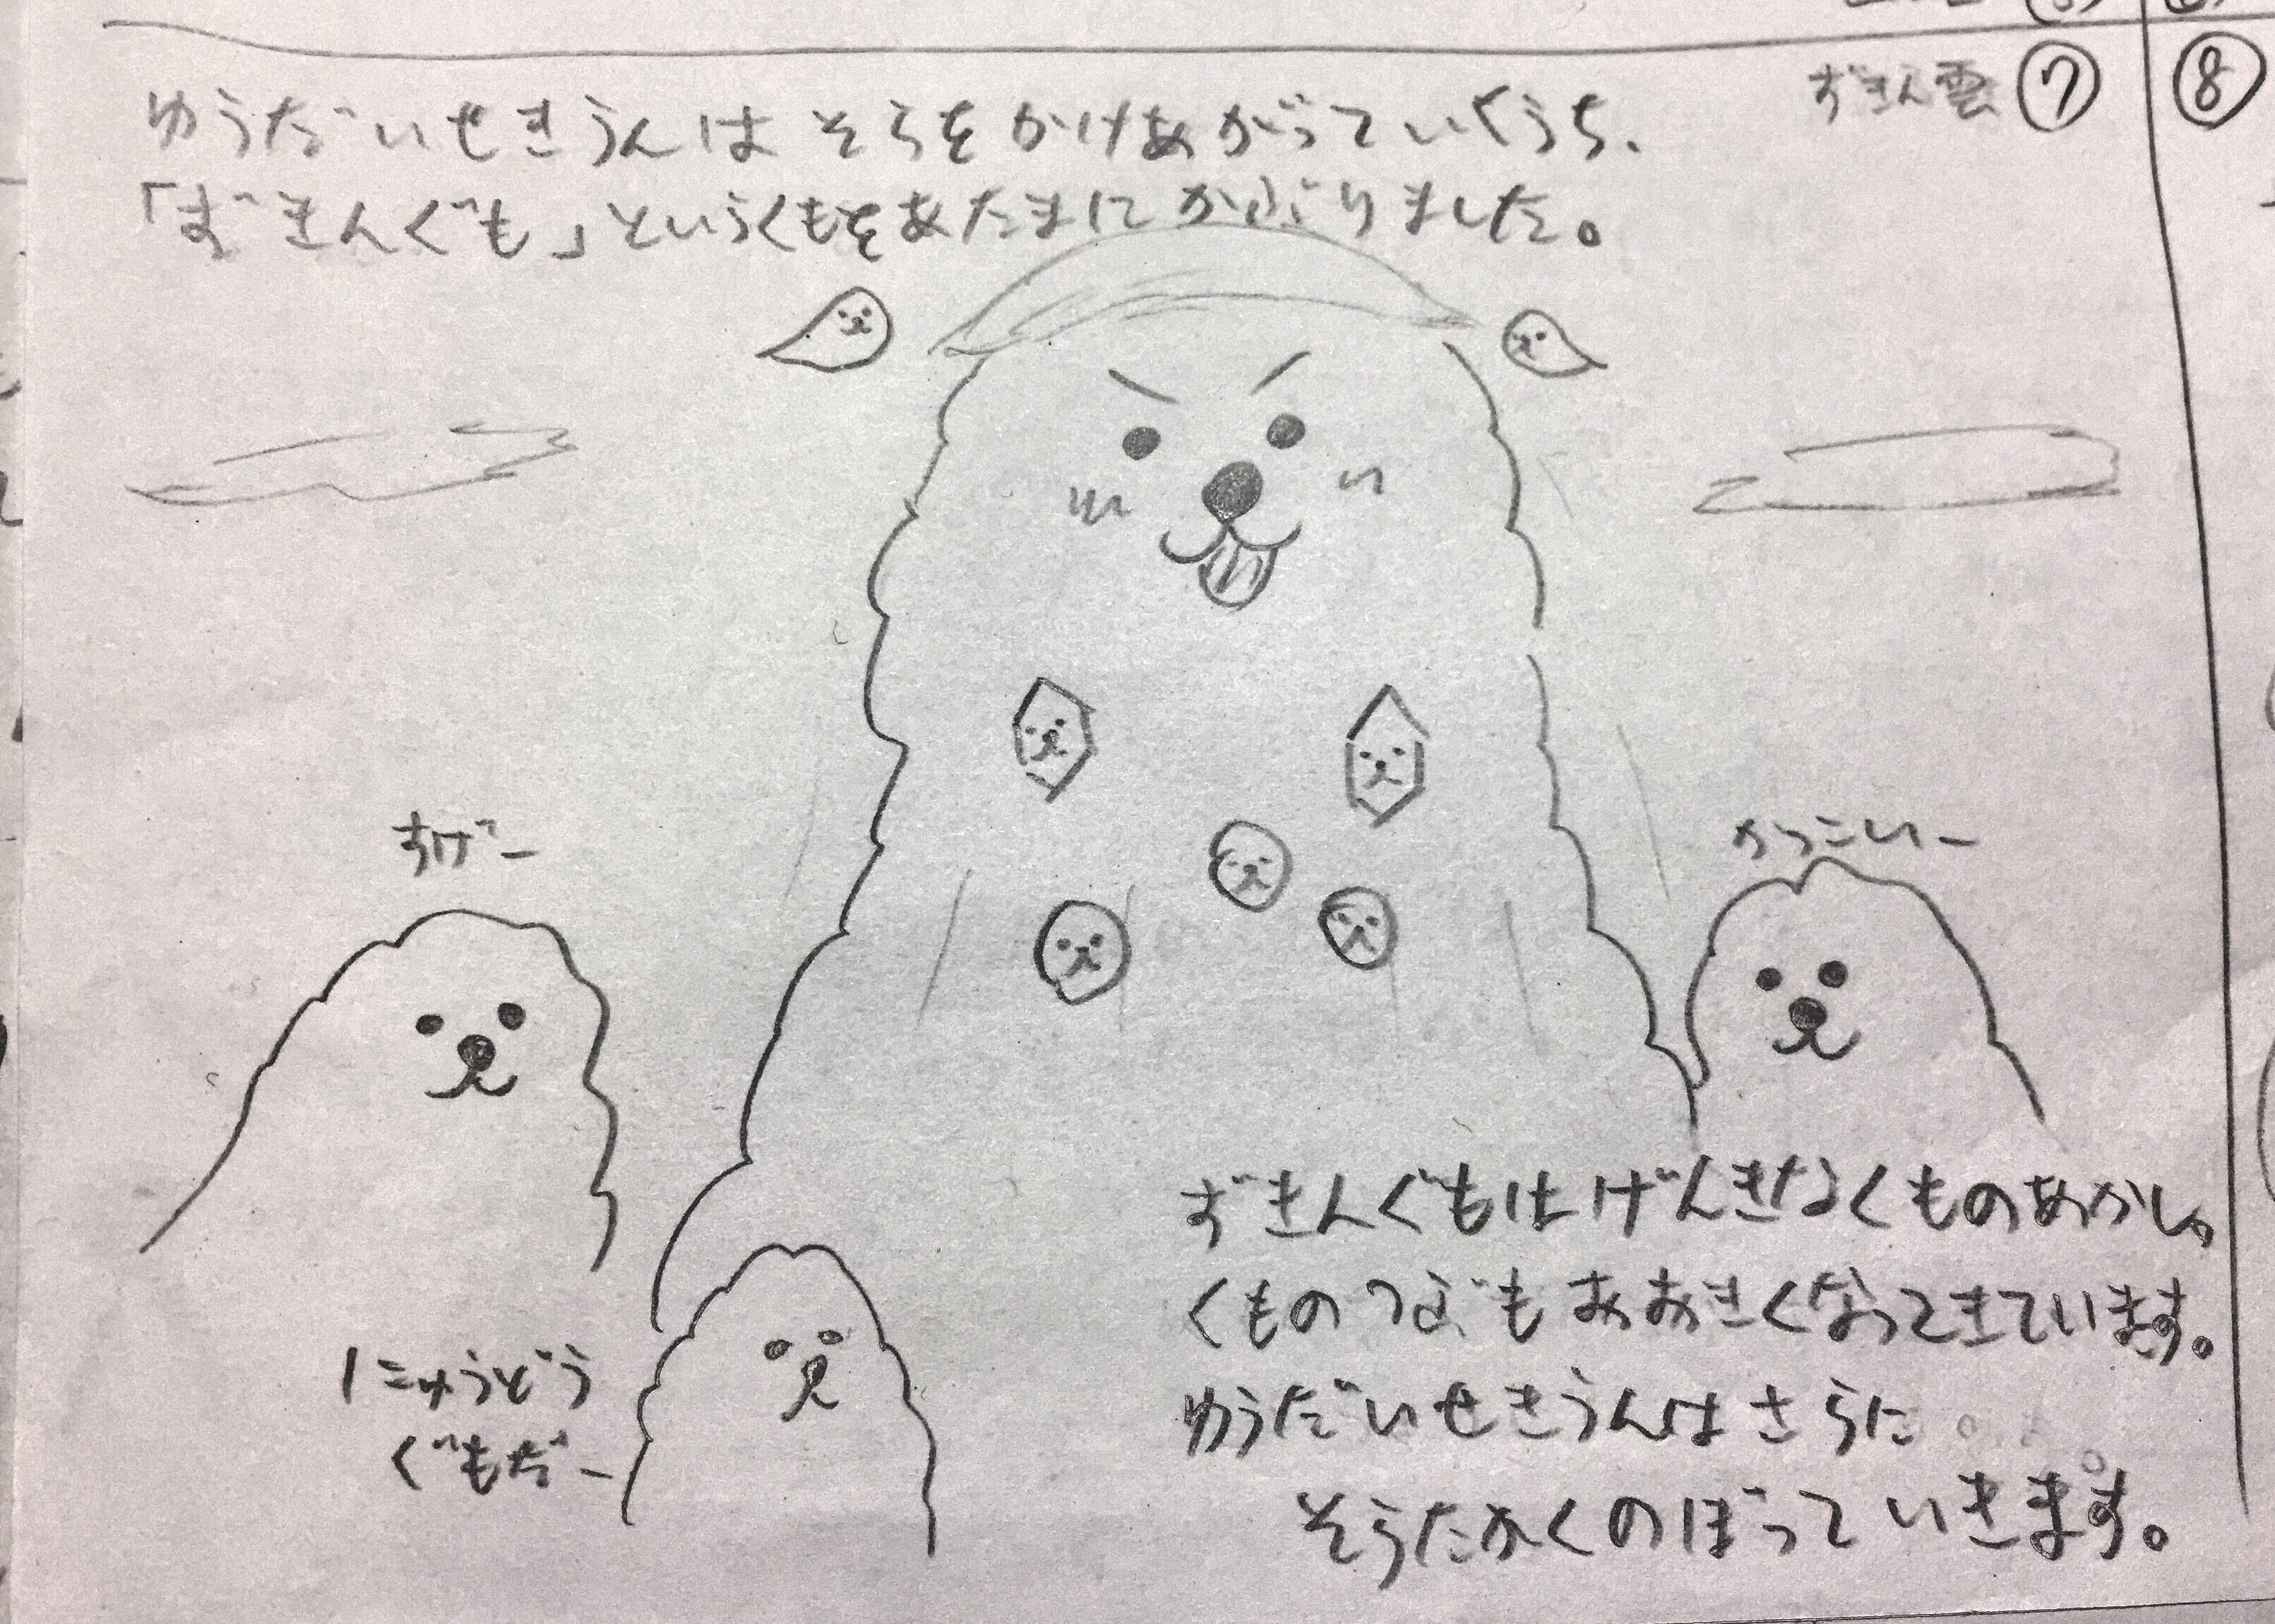 ずきん雲 ⑦
⑧
ゆうだいせきうんは そらをかけあがっていくうち、
「ずきんぐも」というくもをあたまにかぶりました。
すげー
かっこいー
にゅうどう
ぐもだー
ずきんぐもはげんきなくものあかし。
くものつぶもおおきくなってきています。
ゆうだいせきうんはさらに
そらたかくのぼっていきます。